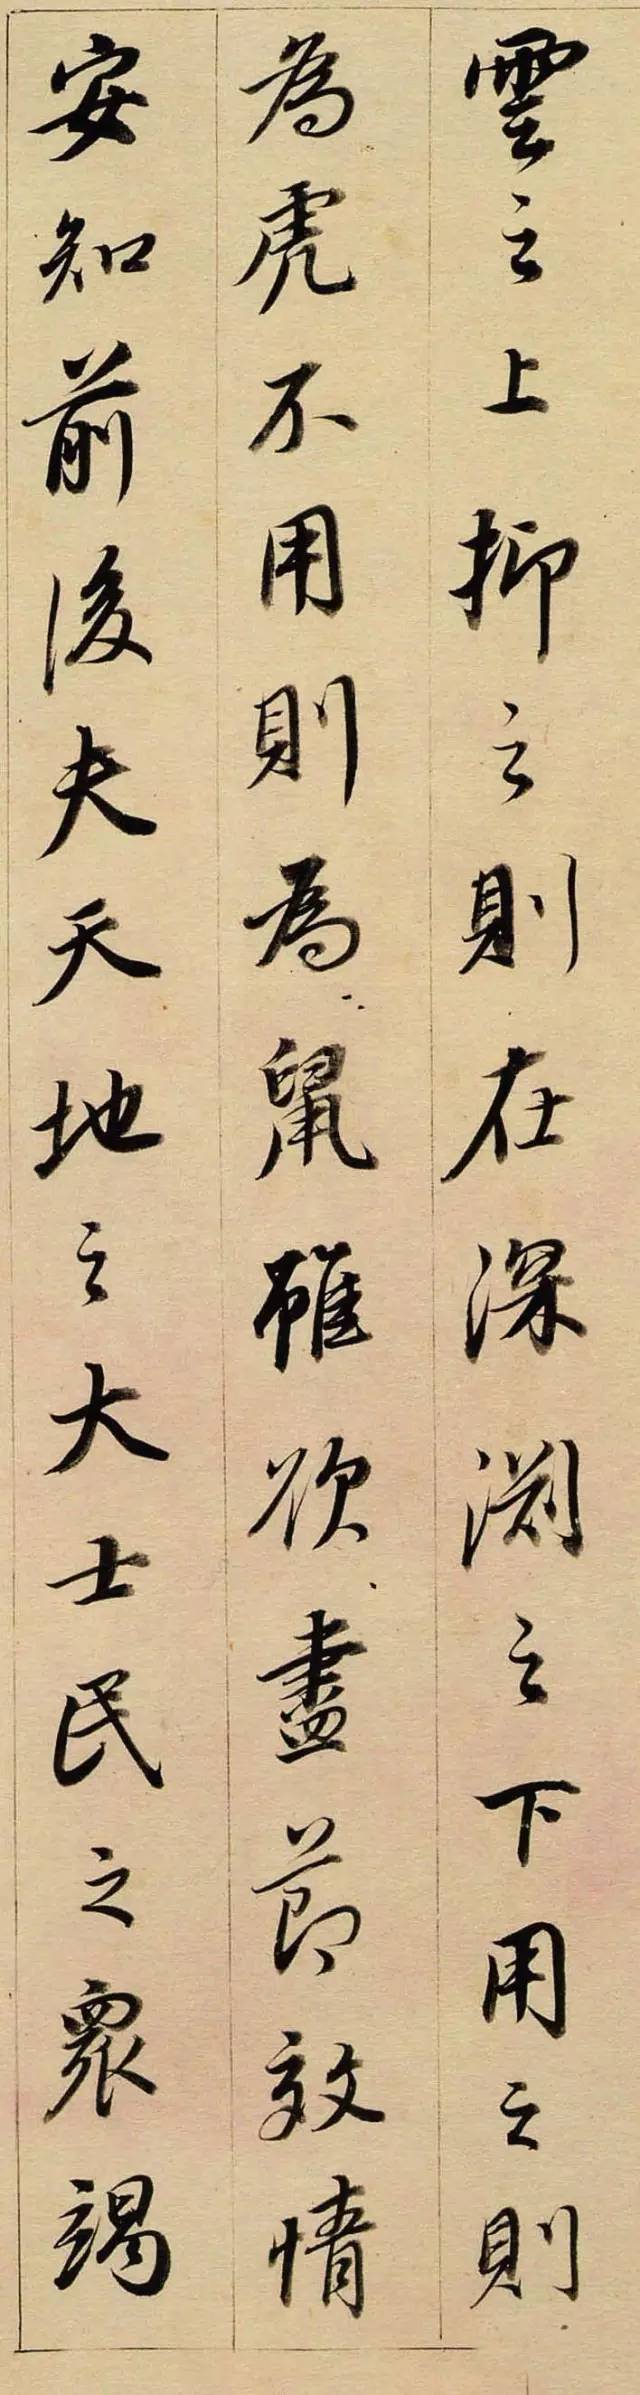 雲之上抑之則在深淵之下用之則
為虎不用則為鼠雖欲盡節效情
安知前後夫天地之大士民之眾竭